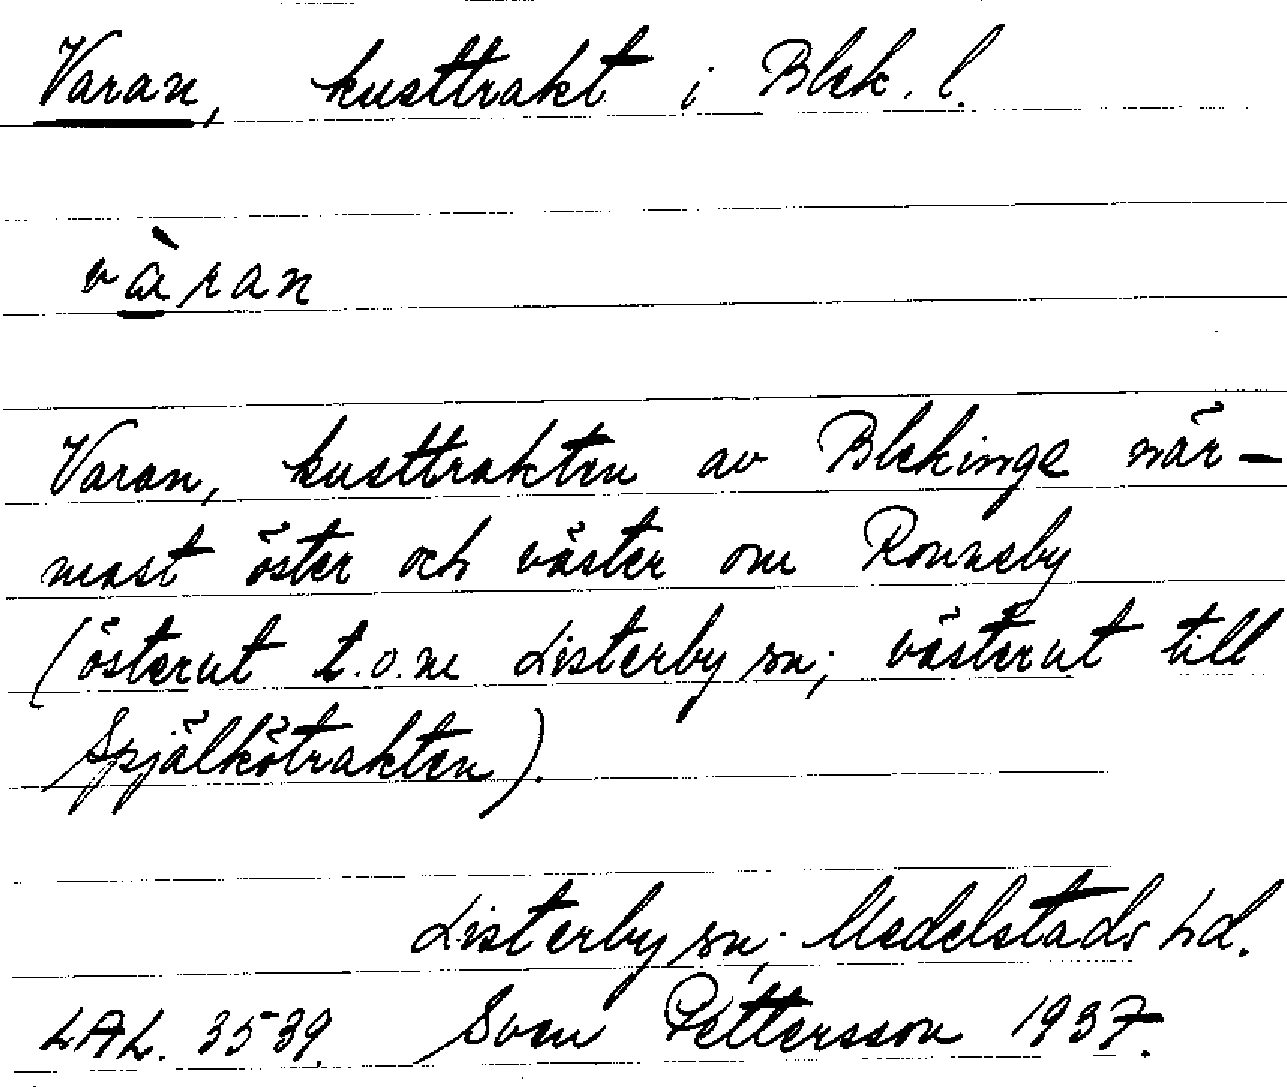 Varan, kusttrakt i Blek. l.
vàran
Varan, kusttrakten av Blekinge när-
mast öster och väster om Ronneby
(österut t.o.m Listerby sn; västerut till
Spjälkötrakten).
Listerby sn; Medelstads hd.
LAL. 3539. Sven Pettersson 1937.